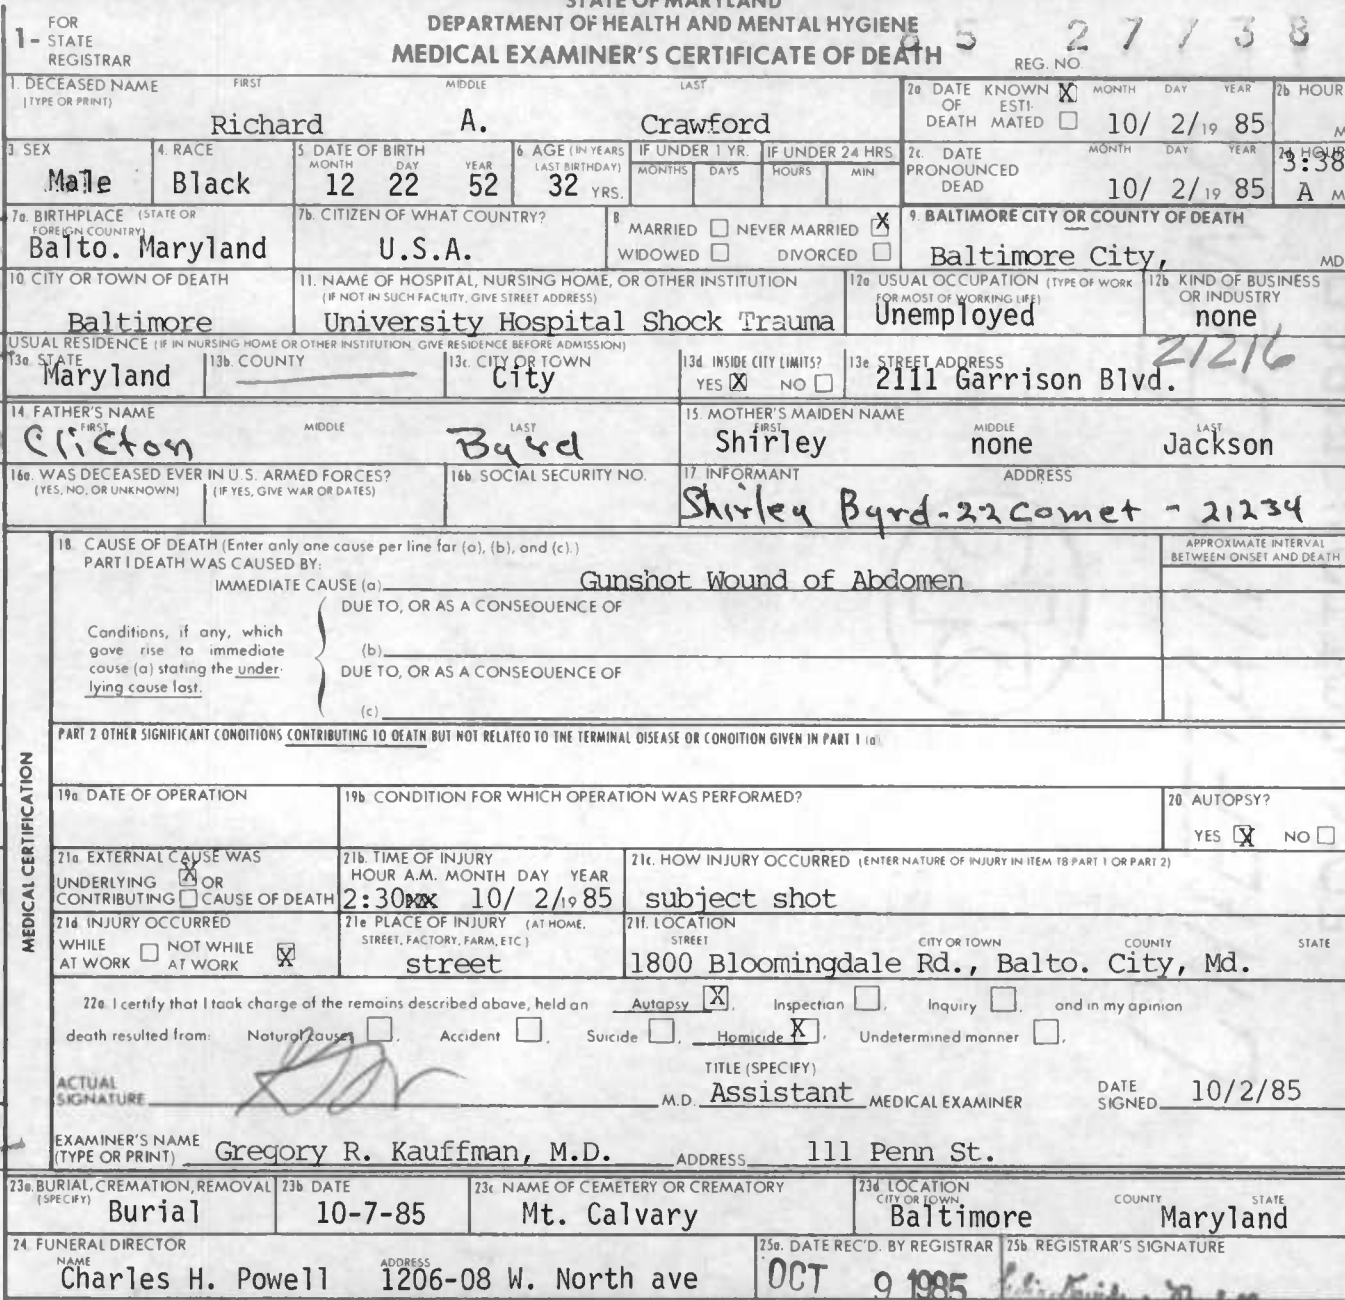 STATE OF MARYLAND
DEPARTMENT OF HEALTH AND MENTAL HYGIENE
MEDICAL EXAMINER'S CERTIFICATE OF DEATH
1- FOR STATE REGISTRAR
REG. NO. 85 27738
1. DECEASED NAME (TYPE OR PRINT) FIRST MIDDLE LAST
Richard A. Crawford
2a DATE OF DEATH KNOWN X ESTIMATED MONTH DAY YEAR
10/ 2/19 85
2b HOUR M
3 SEX
Male
4. RACE
Black
5 DATE OF BIRTH MONTH DAY YEAR
12 22 52
6. AGE (IN YEARS LAST BIRTHDAY)
32 YRS.
IF UNDER 1 YR. MONTHS DAYS
IF UNDER 24 HRS HOURS MIN
2c. DATE PRONOUNCED DEAD MONTH DAY YEAR
10/ 2/19 85
2d HOUR
3:38 A M
7a. BIRTHPLACE (STATE OR FOREIGN COUNTRY)
Balto. Maryland
7b. CITIZEN OF WHAT COUNTRY?
U.S.A.
8 MARRIED NEVER MARRIED X
WIDOWED DIVORCED
9. BALTIMORE CITY OR COUNTY OF DEATH
Baltimore City, MD
10 CITY OR TOWN OF DEATH
Baltimore
11. NAME OF HOSPITAL, NURSING HOME, OR OTHER INSTITUTION
(IF NOT IN SUCH FACILITY, GIVE STREET ADDRESS)
University Hospital Shock Trauma
12a USUAL OCCUPATION (TYPE OF WORK FOR MOST OF WORKING LIFE)
Unemployed
12b KIND OF BUSINESS OR INDUSTRY
none
USUAL RESIDENCE (IF IN NURSING HOME OR OTHER INSTITUTION, GIVE RESIDENCE BEFORE ADMISSION)
13a. STATE
Maryland
13b. COUNTY
13c. CITY OR TOWN
City
13d. INSIDE CITY LIMITS?
YES X NO
13e STREET ADDRESS
2111 Garrison Blvd. 21216
14 FATHER'S NAME FIRST MIDDLE LAST
Clicton Byrd
15. MOTHER'S MAIDEN NAME FIRST MIDDLE LAST
Shirley none Jackson
16a. WAS DECEASED EVER IN U.S. ARMED FORCES?
(YES, NO, OR UNKNOWN) (IF YES, GIVE WAR OR DATES)
16b SOCIAL SECURITY NO.
17 INFORMANT ADDRESS
Shirley Byrd-22 Comet - 21234
MEDICAL CERTIFICATION
18. CAUSE OF DEATH (Enter only one cause per line for (a), (b), and (c).)
PART I DEATH WAS CAUSED BY:
APPROXIMATE INTERVAL BETWEEN ONSET AND DEATH
IMMEDIATE CAUSE (a) Gunshot Wound of Abdomen
DUE TO, OR AS A CONSEQUENCE OF
Conditions, if any, which gave rise to immediate cause (a) stating the underlying cause last.
(b)
DUE TO, OR AS A CONSEQUENCE OF
(c)
PART 2 OTHER SIGNIFICANT CONDITIONS CONTRIBUTING TO DEATH BUT NOT RELATED TO THE TERMINAL DISEASE OR CONDITION GIVEN IN PART 1 (a).
19a DATE OF OPERATION
19b CONDITION FOR WHICH OPERATION WAS PERFORMED?
20 AUTOPSY?
YES X NO
21a EXTERNAL CAUSE WAS
UNDERLYING X OR
CONTRIBUTING CAUSE OF DEATH
21b. TIME OF INJURY
HOUR A.M. MONTH DAY YEAR
2:30 10/ 2/19 85
21c. HOW INJURY OCCURRED (ENTER NATURE OF INJURY IN ITEM 18 PART 1 OR PART 2)
subject shot
21d INJURY OCCURRED
WHILE AT WORK NOT WHILE AT WORK X
21e PLACE OF INJURY (AT HOME, STREET, FACTORY, FARM, ETC)
street
21f. LOCATION
STREET CITY OR TOWN COUNTY STATE
1800 Bloomingdale Rd., Balto. City, Md.
22a I certify that I took charge of the remains described above, held an Autopsy X, Inspection, Inquiry, and in my opinion
death resulted from: Natural causes, Accident, Suicide, Homicide X, Undetermined manner.
ACTUAL SIGNATURE
TITLE (SPECIFY)
M.D. Assistant MEDICAL EXAMINER
DATE SIGNED 10/2/85
EXAMINER'S NAME (TYPE OR PRINT) Gregory R. Kauffman, M.D. ADDRESS 111 Penn St.
23a. BURIAL, CREMATION, REMOVAL (SPECIFY)
Burial
23b DATE
10-7-85
23c NAME OF CEMETERY OR CREMATORY
Mt. Calvary
23d LOCATION
CITY OR TOWN COUNTY STATE
Baltimore Maryland
24. FUNERAL DIRECTOR
NAME ADDRESS
Charles H. Powell 1206-08 W. North ave
25a. DATE REC'D. BY REGISTRAR
OCT 9 1985
25b REGISTRAR'S SIGNATURE